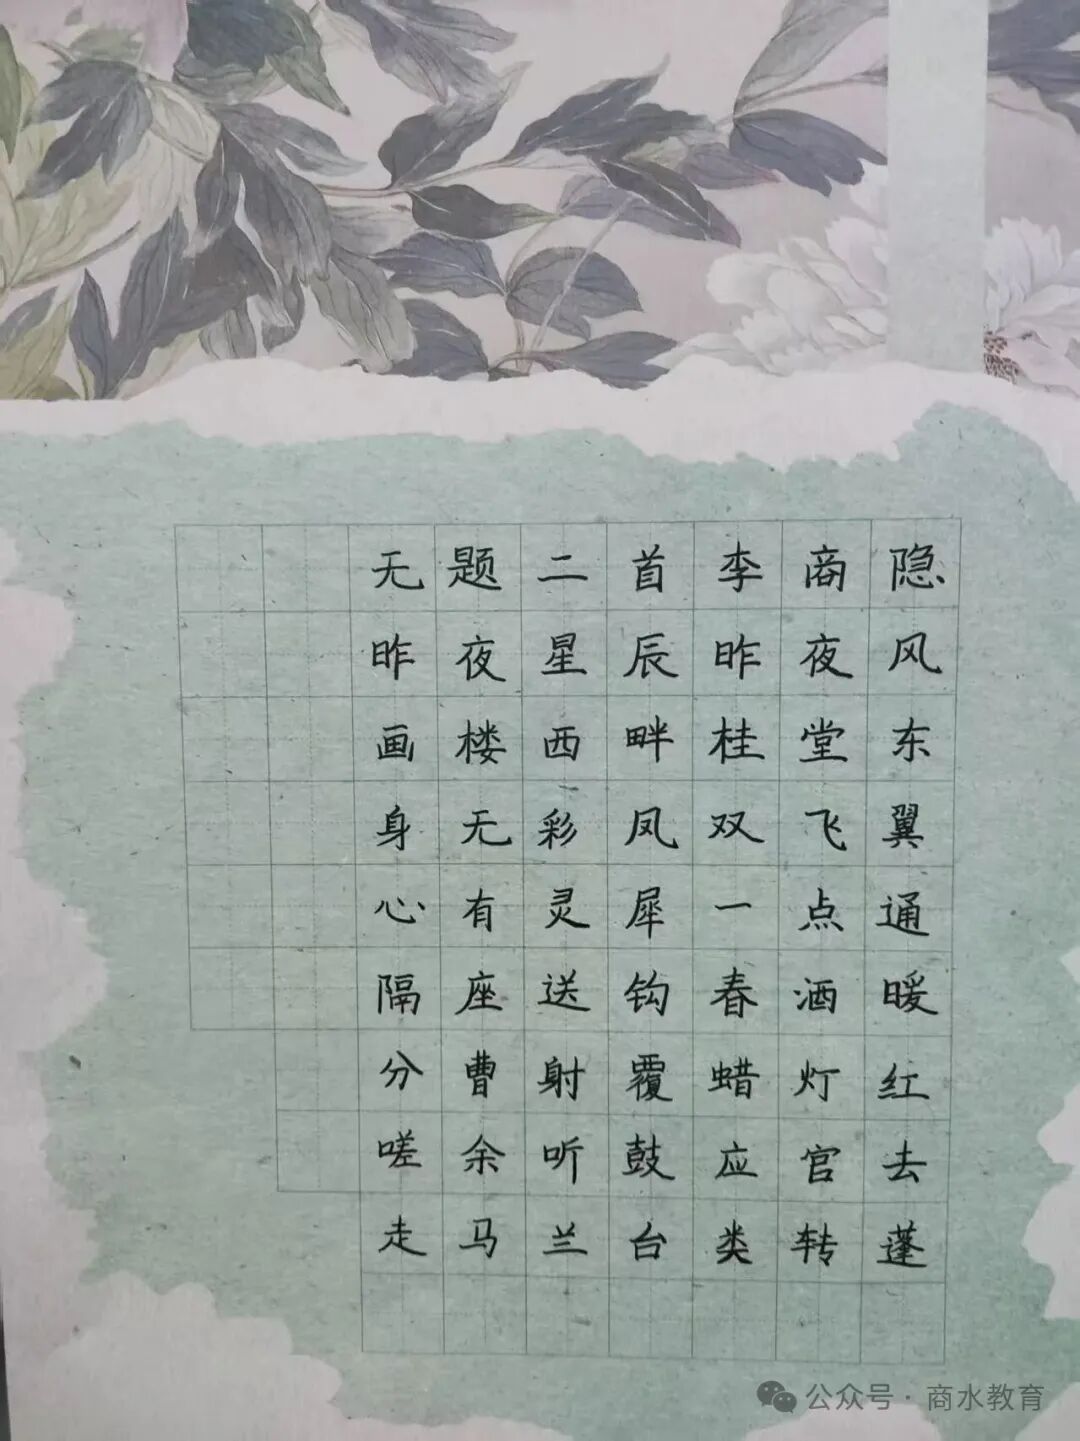 无题二首李商隐
昨夜星辰昨夜风
画楼西畔桂堂东
身无彩凤双飞翼
心有灵犀一点通
隔座送钩春酒暖
分曹射覆蜡灯红
嗟余听鼓应官去
走马兰台类转蓬
公众号·商水教育